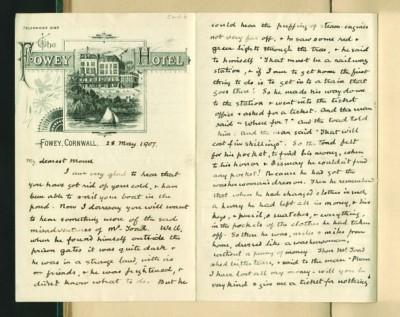 The
FOWEY
HOTEL
FOWEY, CORNWALL. 28 May 1907.
My dearest Mouse
I am very glad to hear that
you have got rid of your cold, & have
been able to sail your boat in the
pond. Now I daresay you will want
to hear something more of the sad
misadventures of Mr. Toad. Well,
when he found himself outside the
prison gates it was quite dark &
he was in a strange land, with no
friends, & he was frightened, &
didn't know what to do. But he
could hear the puffing of steam-engines
not very far off, & he saw some red &
green lights through the trees, & he said
to himself "That must be a railway
station, & if I am to get home the first
thing to do is to get into a train that
goes there". So he made his way down
to the station & went into the ticket
office & asked for a ticket. And the man
said "Where for?" And the Toad told
him. And the man said "That will
cost five shillings". So the Toad felt
for his pocket, to find his money, when
to his horror & dismay he couldn't find
any pocket! Because he had got the
washerwoman's dress on. Then he remembered
that when he had changed clothes in such
a hurry he had left all his money, & his
keys, & pencil, & watches, & everything,
in the pockets of the clothes he had taken
off. So there he was, miles & miles from
home, dressed like a washerwoman,
without a penny of money. Then Mr Toad
shed bitter tears, & said to the man "Please
I have lost all my money - will you be
very kind & give me a ticket for nothing